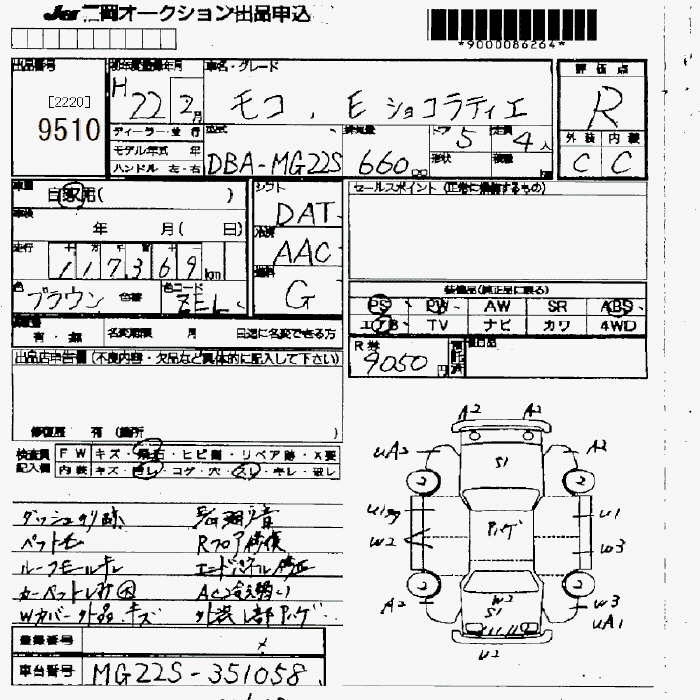 JU 二岡オークション出品申込
*9000086264*
出品番号
[2220]
9510
初年度登録年月
H 22 2月
車名・グレード
モコ . E ショコラティエ
評価点
R
外装 内装
C C
ディーラー・並行
モデル年式 年
ハンドル 左・右
型式
DBA-MG22S
排気量
660 cc
ドア
5
定員
4人
形状
積載
車歴
自家用( )
車検
年 月( 日)
走行
117369 km
色
ブラウン 色替
色コード
ZEL
シフト
DAT
冷房
AAC
燃料
G
セールスポイント(正常に構備するもの)
装備品(純正品に限る)
PS PW AW SR ABS
エアB TV ナビ カワ 4WD
有・無 名変期限 月 日迄に名変できる方
R券
9050円
預託済
出品店申告欄(不良内容・欠品など具体的に記入して下さい)
修復歴 有(箇所 )
検査員記入欄
FW キズ・飛石・ヒビ割・リペア跡・X要
内装 キズ・汚レ・コゲ・穴・スレ・キレ・破レ
ダッシュのり跡
ペット毛
Rフロア修復
ルーフモールキレ
エンドパネル修正
カーペット汚れ大
Wカバー外品.キズ
外装し部アハゲ
登録番号
車台番号 MG22S-351058
A2 A2
uA2 S1 A2
U1 ハゲ U1
W2 W3
A2 W2 S1 W3 uA1
U2